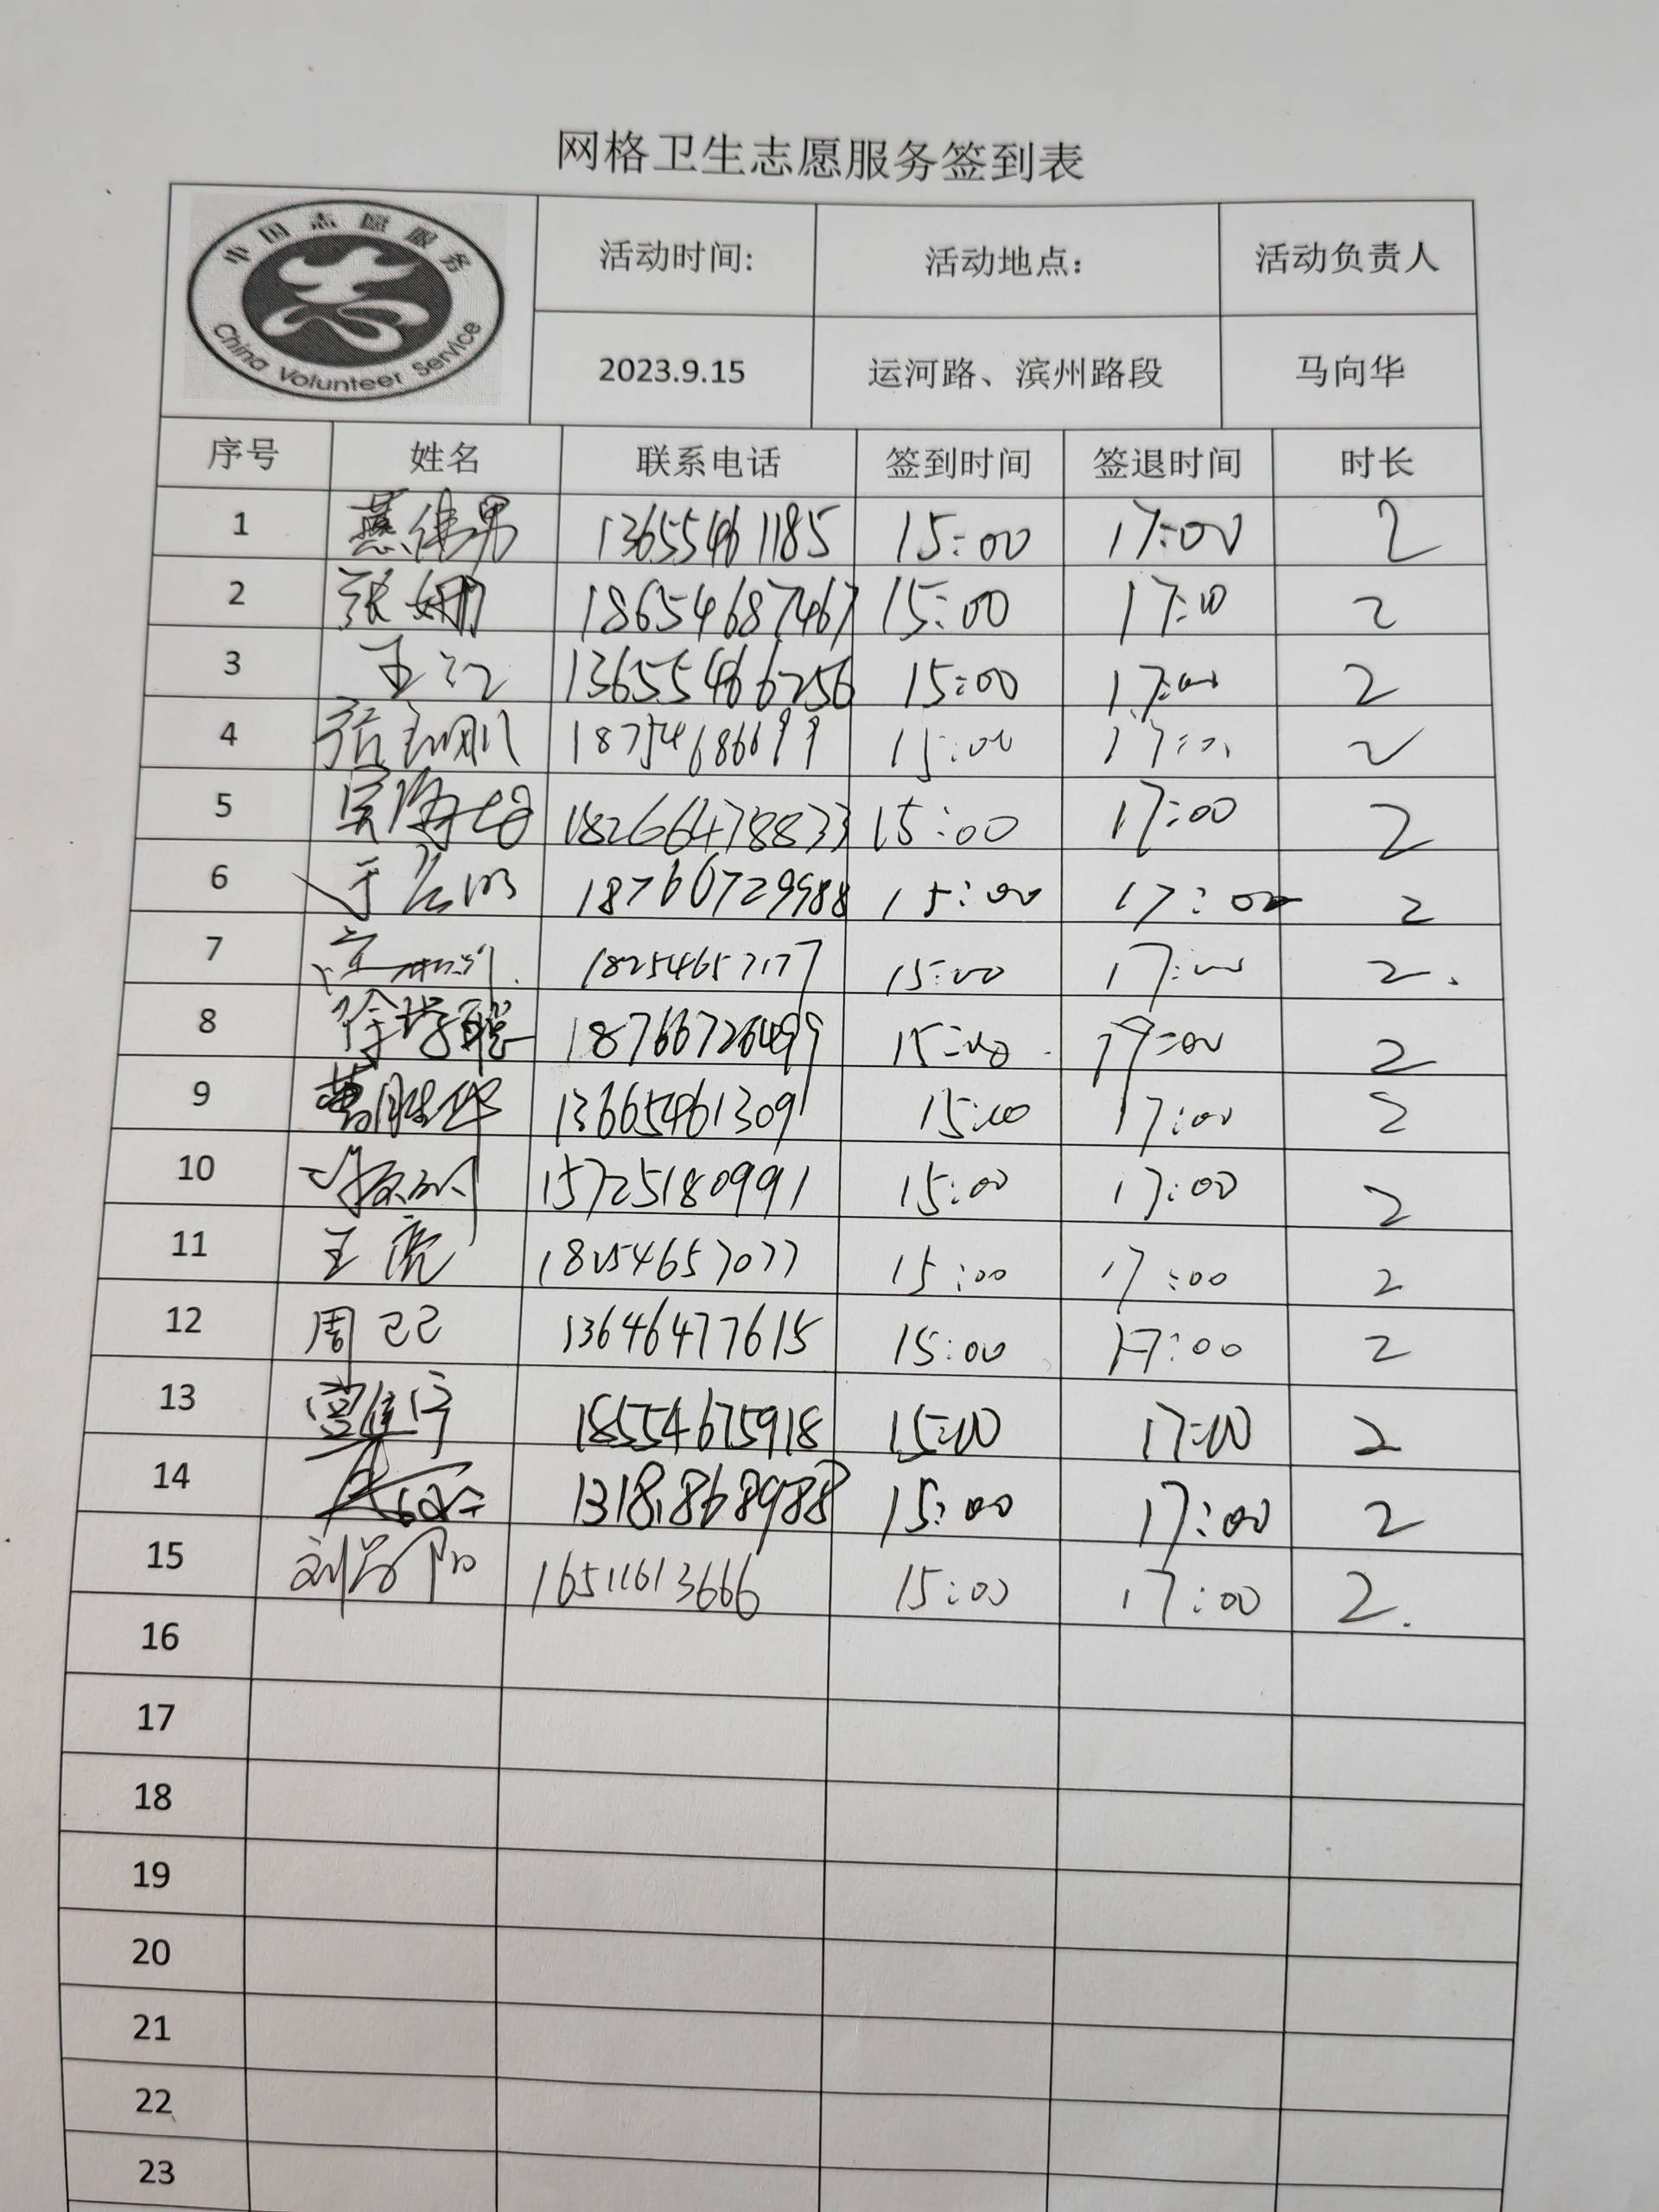 网格卫生志愿服务签到表
中国志愿服务
China Volunteer Service
活动时间: 活动地点: 活动负责人
2023.9.15 运河路、滨州路段 马向华
序号 姓名 联系电话 签到时间 签退时间 时长
1 燕伟男 13655461185 15:00 17:00 2
2 张姗 18654687467 15:00 17:00 2
3 王江 13655466256 15:00 17:00 2
4 18754686699 15:00 17:00 2
5 18266478833 15:00 17:00 2
6 18760729988 15:00 17:00 2
7 15:00 17:00 2.
8 徐 15:00 2
9 13665461309 15:00 17:00 2
10 15725180991 15:00 17:00 2
11 王亮 18254657077 15:00 17:00 2
12 周己己 13646477615 15:00 17:00 2
13 18554675918 15:00 17:00 2
14 13181868988 15:00 17:00 2
15 刘 16511613666 15:00 17:00 2.
16
17
18
19
20
21
22
23